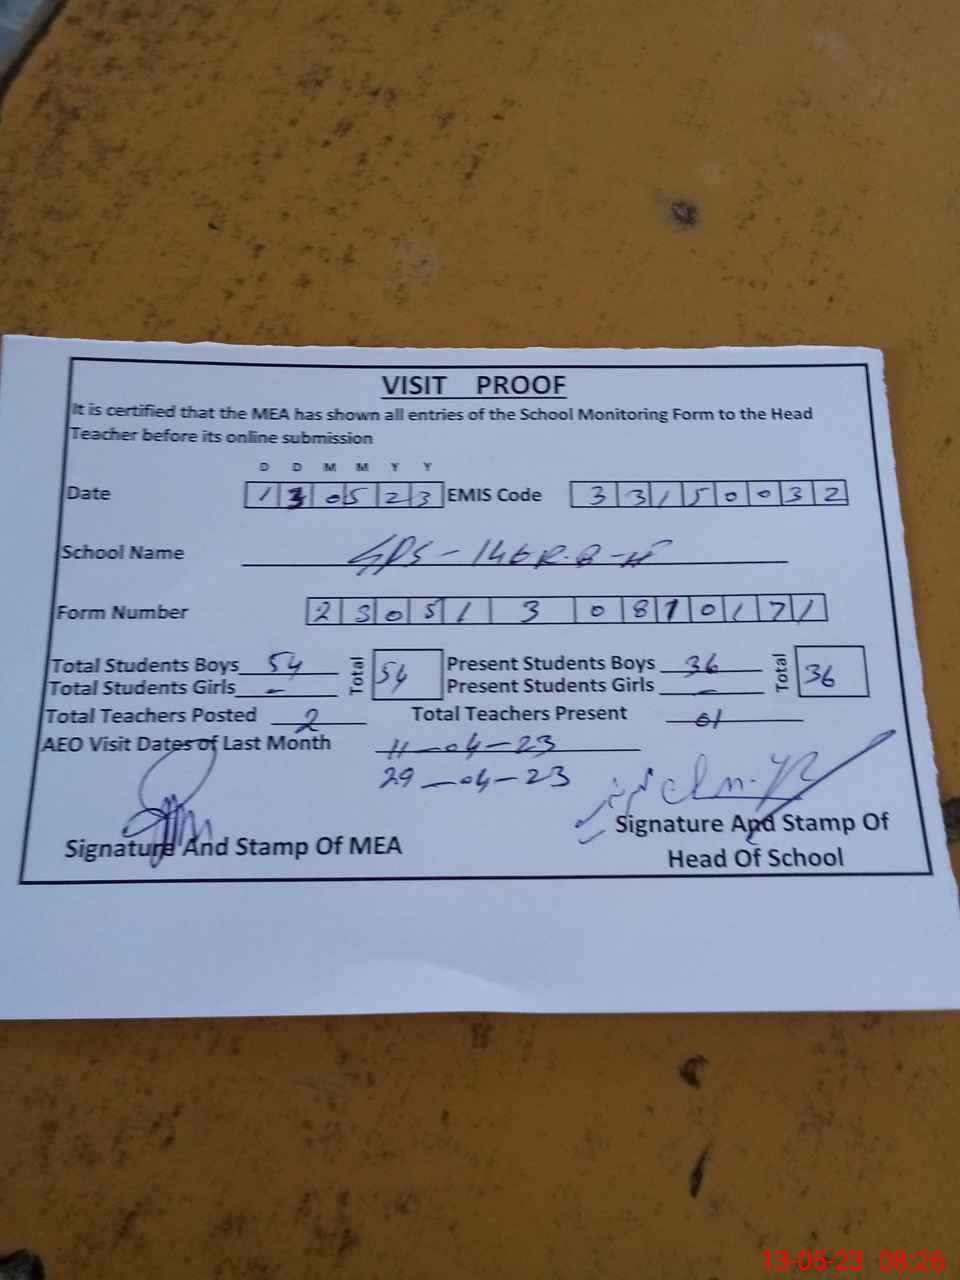 VISIT PROOF
It is certified that the MEA has shown all entries of the School Monitoring Form to the Head
Teacher before its online submission
D D M M Y Y
Date 1 3 0 5 2 3 EMIS Code 3 3 1 5 0 0 3 2
School Name GPS - 146 R.B-II
Form Number 2 3 0 5 1 3 0 8 1 0 1 7 1
Total Students Boys 54 Total 54 Present Students Boys 36 Total 36
Total Students Girls - Present Students Girls -
Total Teachers Posted 2 Total Teachers Present 01
AEO Visit Dates of Last Month 11-04-23
29-04-23
Signature And Stamp Of MEA
Signature And Stamp Of
Head Of School
13-05-23 08:26